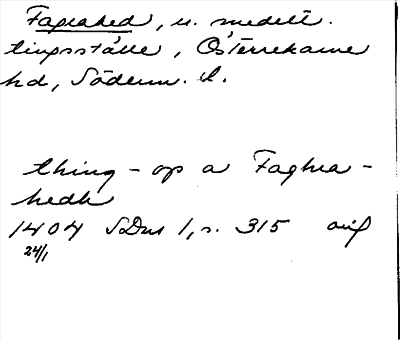 Fagrahed, u. medelt.
tingsställe, Österrekarne
hd, Söderm. l.
thing - op a Faghra -
hedh
1404 SDns 1, s. 315 orig
24/1